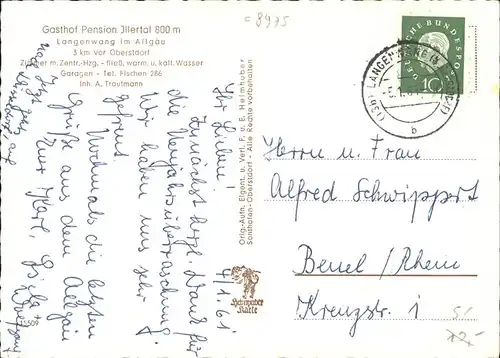 Gasthof Pension Illertal 800 m
Langenwang im Allgäu
3 km vor Oberstdorf
Zimmer m. Zentr.-Hzg. - fließ. warm. u. kalt. Wasser
Garagen - Tel. Fischen 286
Inh. A. Trautmann
8975
4/1.61
Ihr Lieben!
Zunächst herzl. Dank für
die Neujahrsüberraschung.
Wir haben uns sehr
gefreut.
Nochmals die letzten
Grüße aus dem Allgäu
Eure Karl,
Orig.-Aufn. Eigent. u. Verl. F. u. E. Heimhuber
Sonthofen-Oberstdorf - Alle Rechte vorbehalten
Schwaber
Karte
DEUTSCHE BUNDESPOST
10
b
Herrn u. Frau
Alfred Schwippert
Beuel / Rhein
Kreuzstr. 1